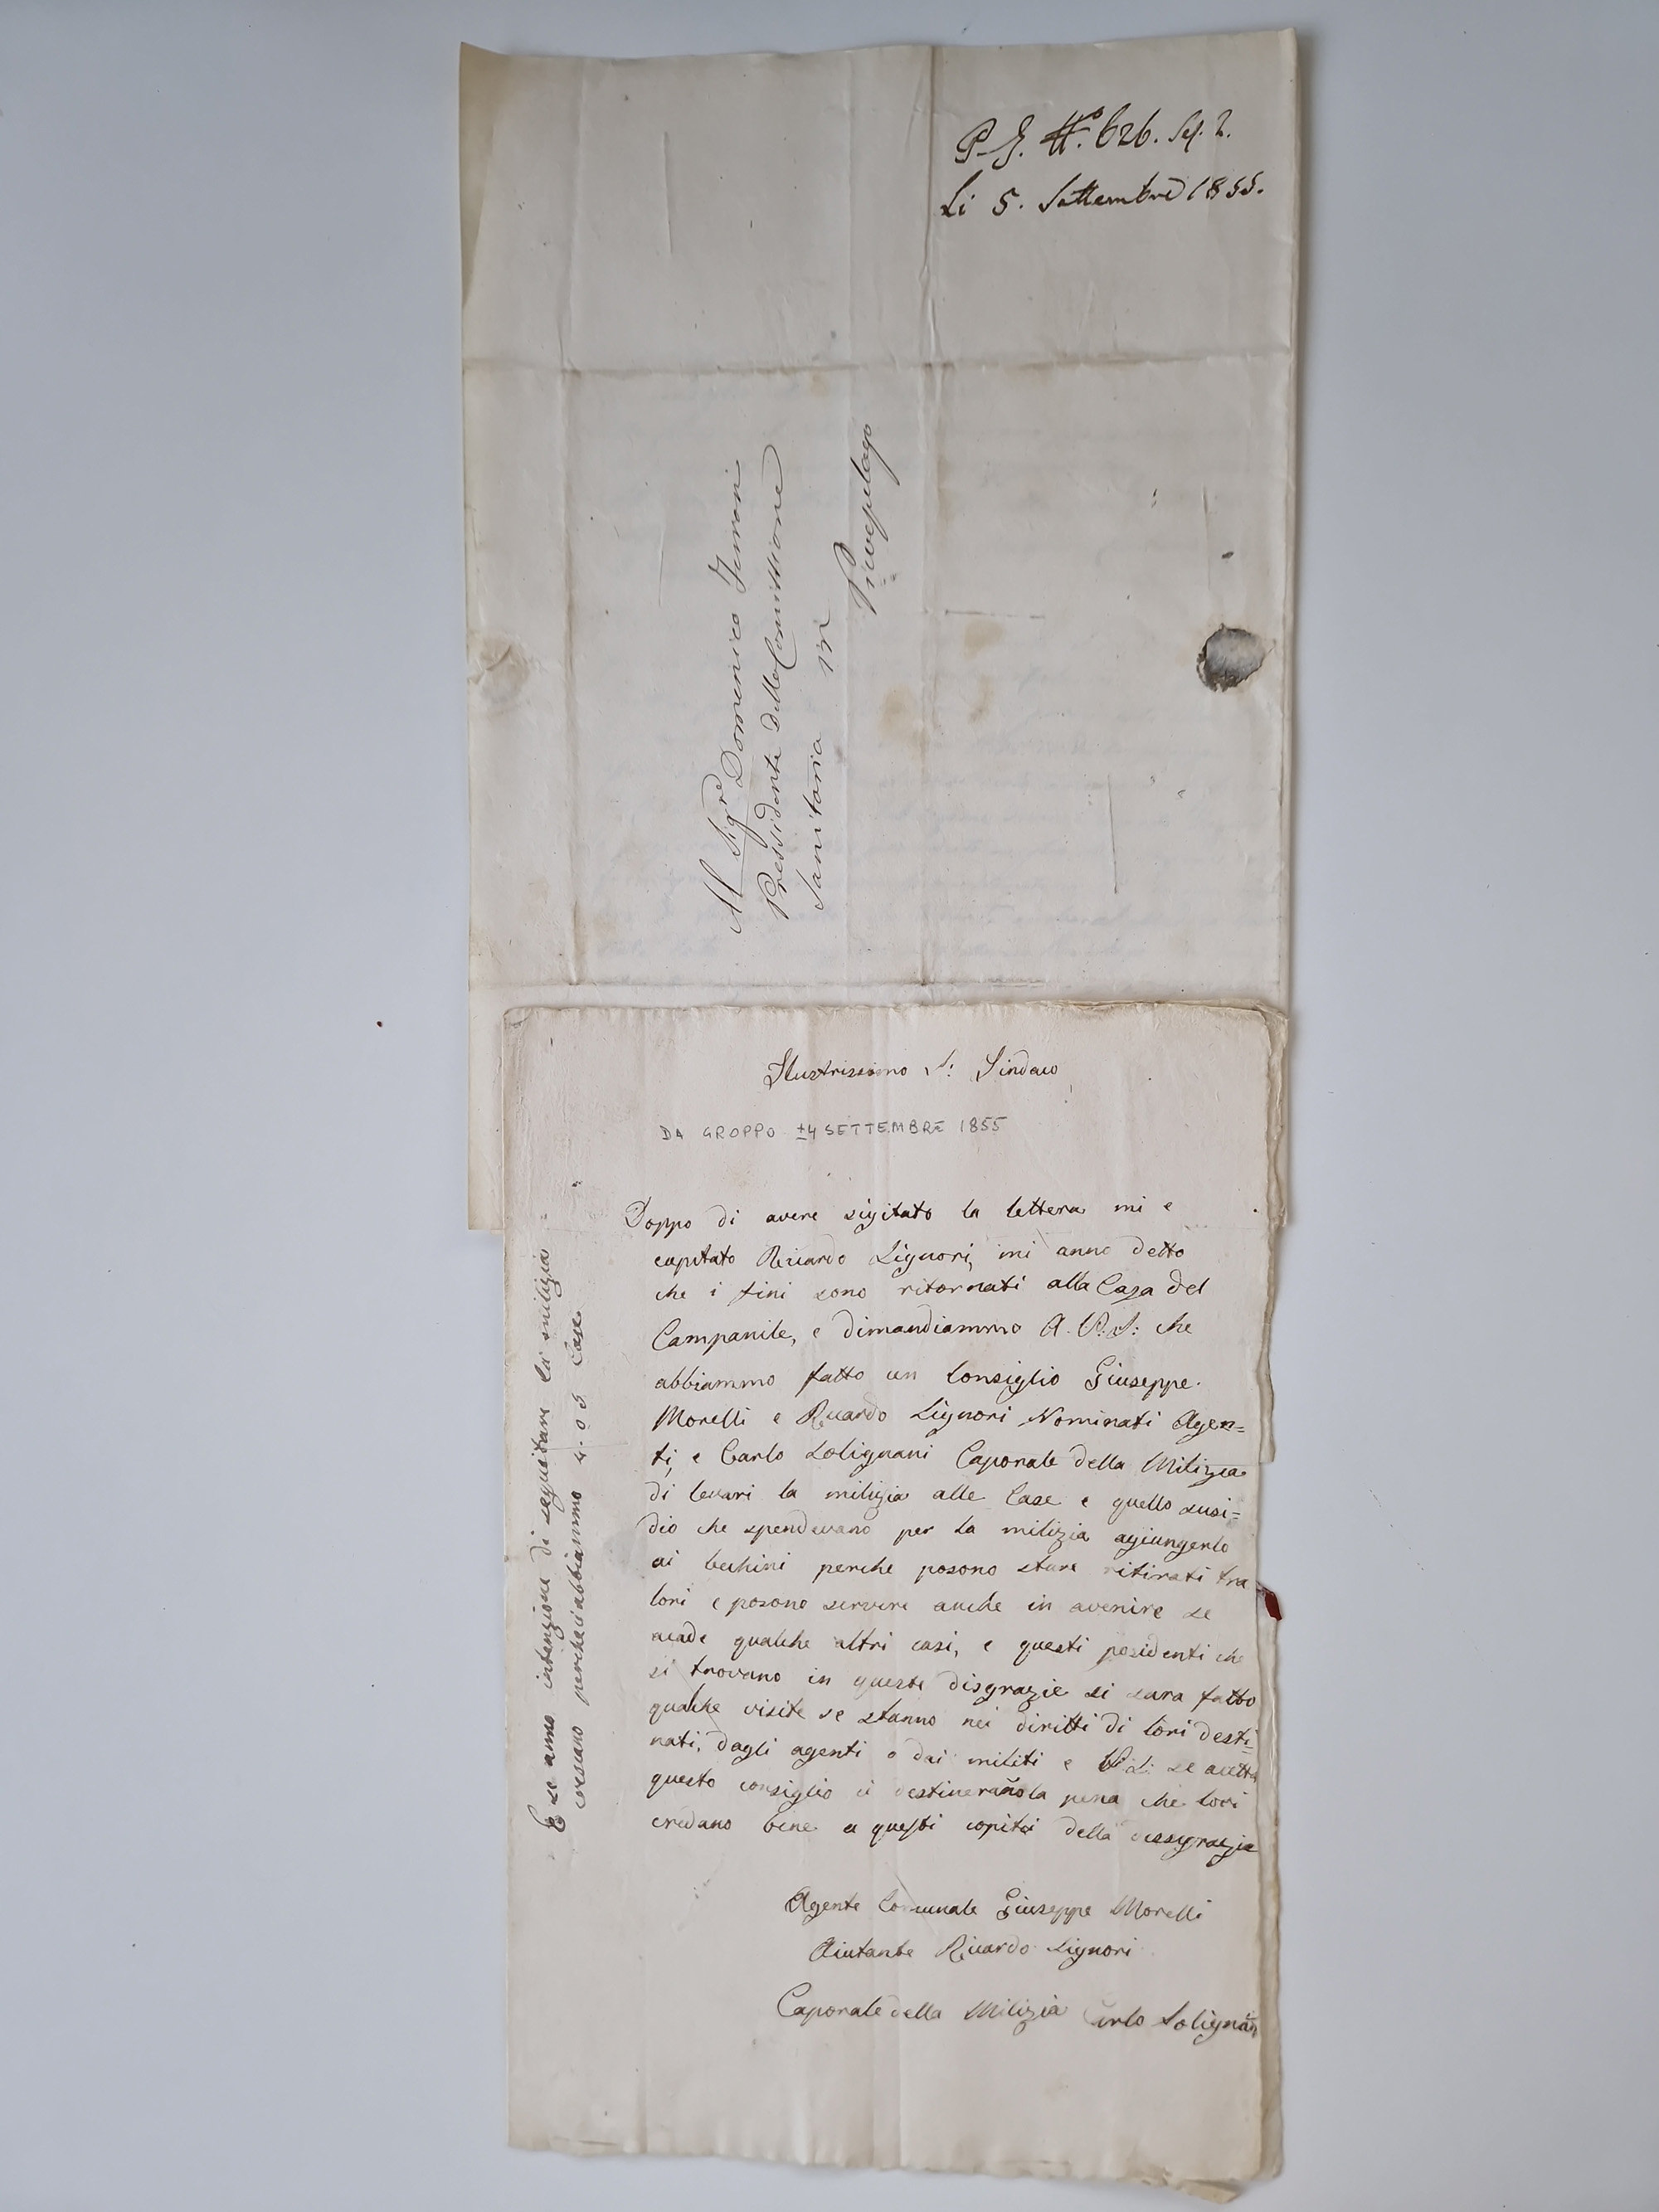 P. G. N.º 626. Sez. 2.
Li 5. Settembre 1855.
Al Sigre Domenico
Pressidente Della Comissione
Sanitaria in
Pievepelago
Ilustrissimo S: Sindaco
DA GROPPO ±4 SETTEMBRE 1855
Doppo di avere sigitato la lettera mi e
capitato Ricardo Lignori, mi anno detto
che i fini sono ritornati alla Casa del
Campanile, e dimandiammo A. V. S: che
abbiammo fatto un Consiglio Giuseppe
Morelli e Ricardo Lignori Nominati Agen=
ti, e Carlo Solignani Caporale della Milizia
di levari la milizia alle Case e quello susi=
dio che spendevano per la milizia agiungerlo
ai bechini perche posono stare ritirati tra
lori e posono servire anche in avenire se
acade qualche altri casi, e questi posidenti che
si trovano in queste disgrazie si sara fatto
qualche visite se stanno nei diritti di lori desti=
nati, dagli agenti o dai militi e V. S: se acetta
questo consiglio ci destinerañola pena che lori
credano bene a questi copiti della dissgrazia
Agente Comunale Giuseppe Morelli
Aiutante Ricardo Lignori
Caporale della Milizia Carlo Solignañ
E se anno intenzione di seguitare la milizia
cresciano perche ci abbiammo 4. o 5 Case